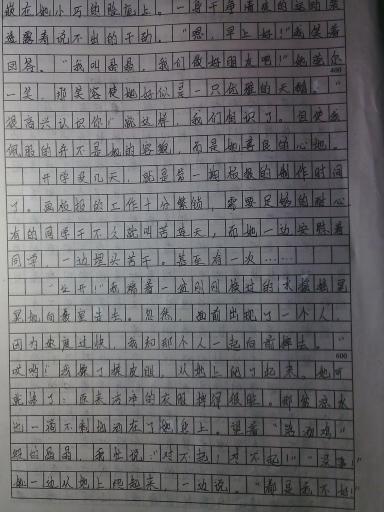 嵌在她小巧的脸蛋上。一身干净清爽的运动装
透露着说不出的干劲。“嗯，早上好！”我笑着
回答。“我叫晶晶，我们做好朋友吧！”她莞尔
400
一笑，那笑容使她好似是一只优雅的天鹅。“
很高兴认识你！”就这样，我们相识了。但使我
佩服的并不是她的容貌，而是她善良的心地。
开学没几天，就是第一期板报的制作时间
了。画板报的工作十分繁锁，需要足够的耐心
有的同学干不久就叫苦连天，而她一边安慰着
同学 一边埋头苦干。甚至有一次……
“让开！”我端着一盆刚刚 过的水摇摇晃
晃地向教室走去。忽然，她前出现了一个人，
因为速度过快，我和那个人一起向前摔去。“
600
哎哟！”我揉了揉皮肚，从地上爬了起来。她可
就惨了：原来 净的衣服摔得很脏。那盆凉水
也一滴不剩地泼在了她身上。望着“落汤鸡”
般的晶晶，我忙说：“对不起！对不起！”“没事！”
她一边从地上爬起来，一边说。“都是我不好！”